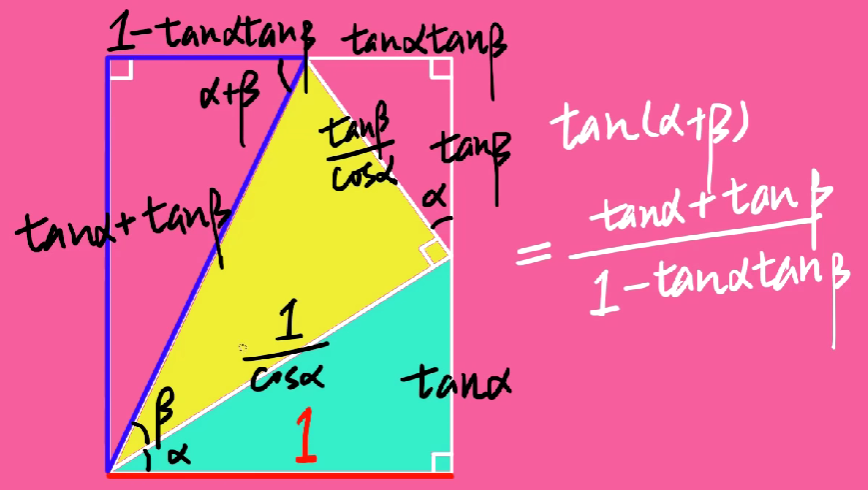 1-tanαtanβ
tanαtanβ
α+β
tanβ
cosα
tanβ
α
tanα+tanβ
1
cosα
tanα
β
α
1
tan(α+β)
= tanα+tanβ
1-tanαtanβ